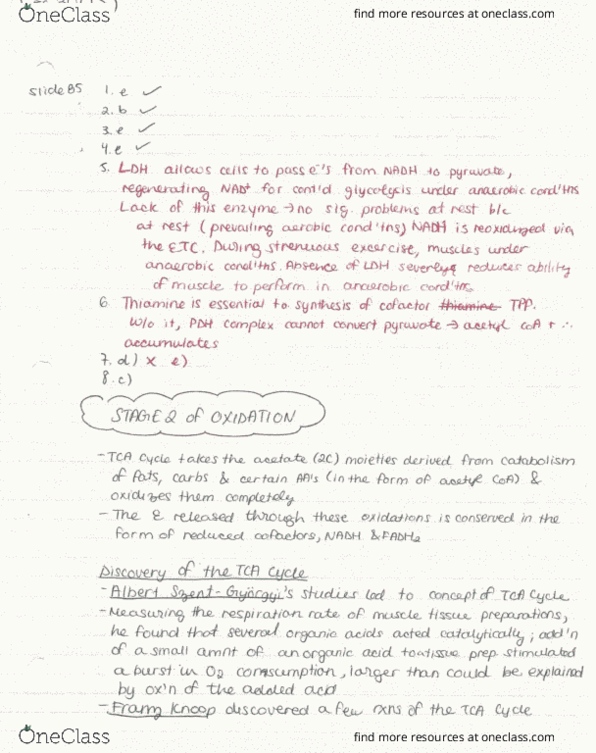 OneClass
find more resources at oneclass.com
slide 85
1. e ✓
2. b ✓
3. e ✓
4. e ✓
5. LDH allows cells to pass e⁻'s from NADH to pyruvate,
regenerating NAD⁺ for cont'd glycolysis under anaerobic cond'tns
Lack of this enzyme → no sig. problems at rest b/c
at rest (prevailing aerobic cond'tns) NADH is reoxidized via
the ETC. During strenuous excercise, muscles under
anaerobic cond'tns. Absence of LDH severely reduces ability
of muscle to perform in anaerobic cond'tns
6. Thiamine is essential to synthesis of cofactor thiamine TPP.
w/o it, PDH complex cannot convert pyruvate → acetyl CoA + ∴
accumulates
7. d) x e)
8. c)
STAGE 2 of OXIDATION
- TCA cycle takes the acetate (2C) moieties derived from catabolism
of fats, carbs & certain AA's (in the form of acetyl CoA) &
oxidizes them completely
- The E released through these oxidations is conserved in the
form of reduced cofactors, NADH & FADH₂
Discovery of the TCA Cycle
- Albert Szent-Györgyi's studies led to concept of TCA cycle
- Measuring the respiration rate of muscle tissue preparations,
he found that several organic acids acted catalytically; add'n
of a small amnt of an organic acid to a tissue prep stimulated
a burst in O₂ consumption, larger than could be explained
by ox'n of the added acid
- Franz Knoop discovered a few rxns of the TCA cycle
OneClass
find more resources at oneclass.com